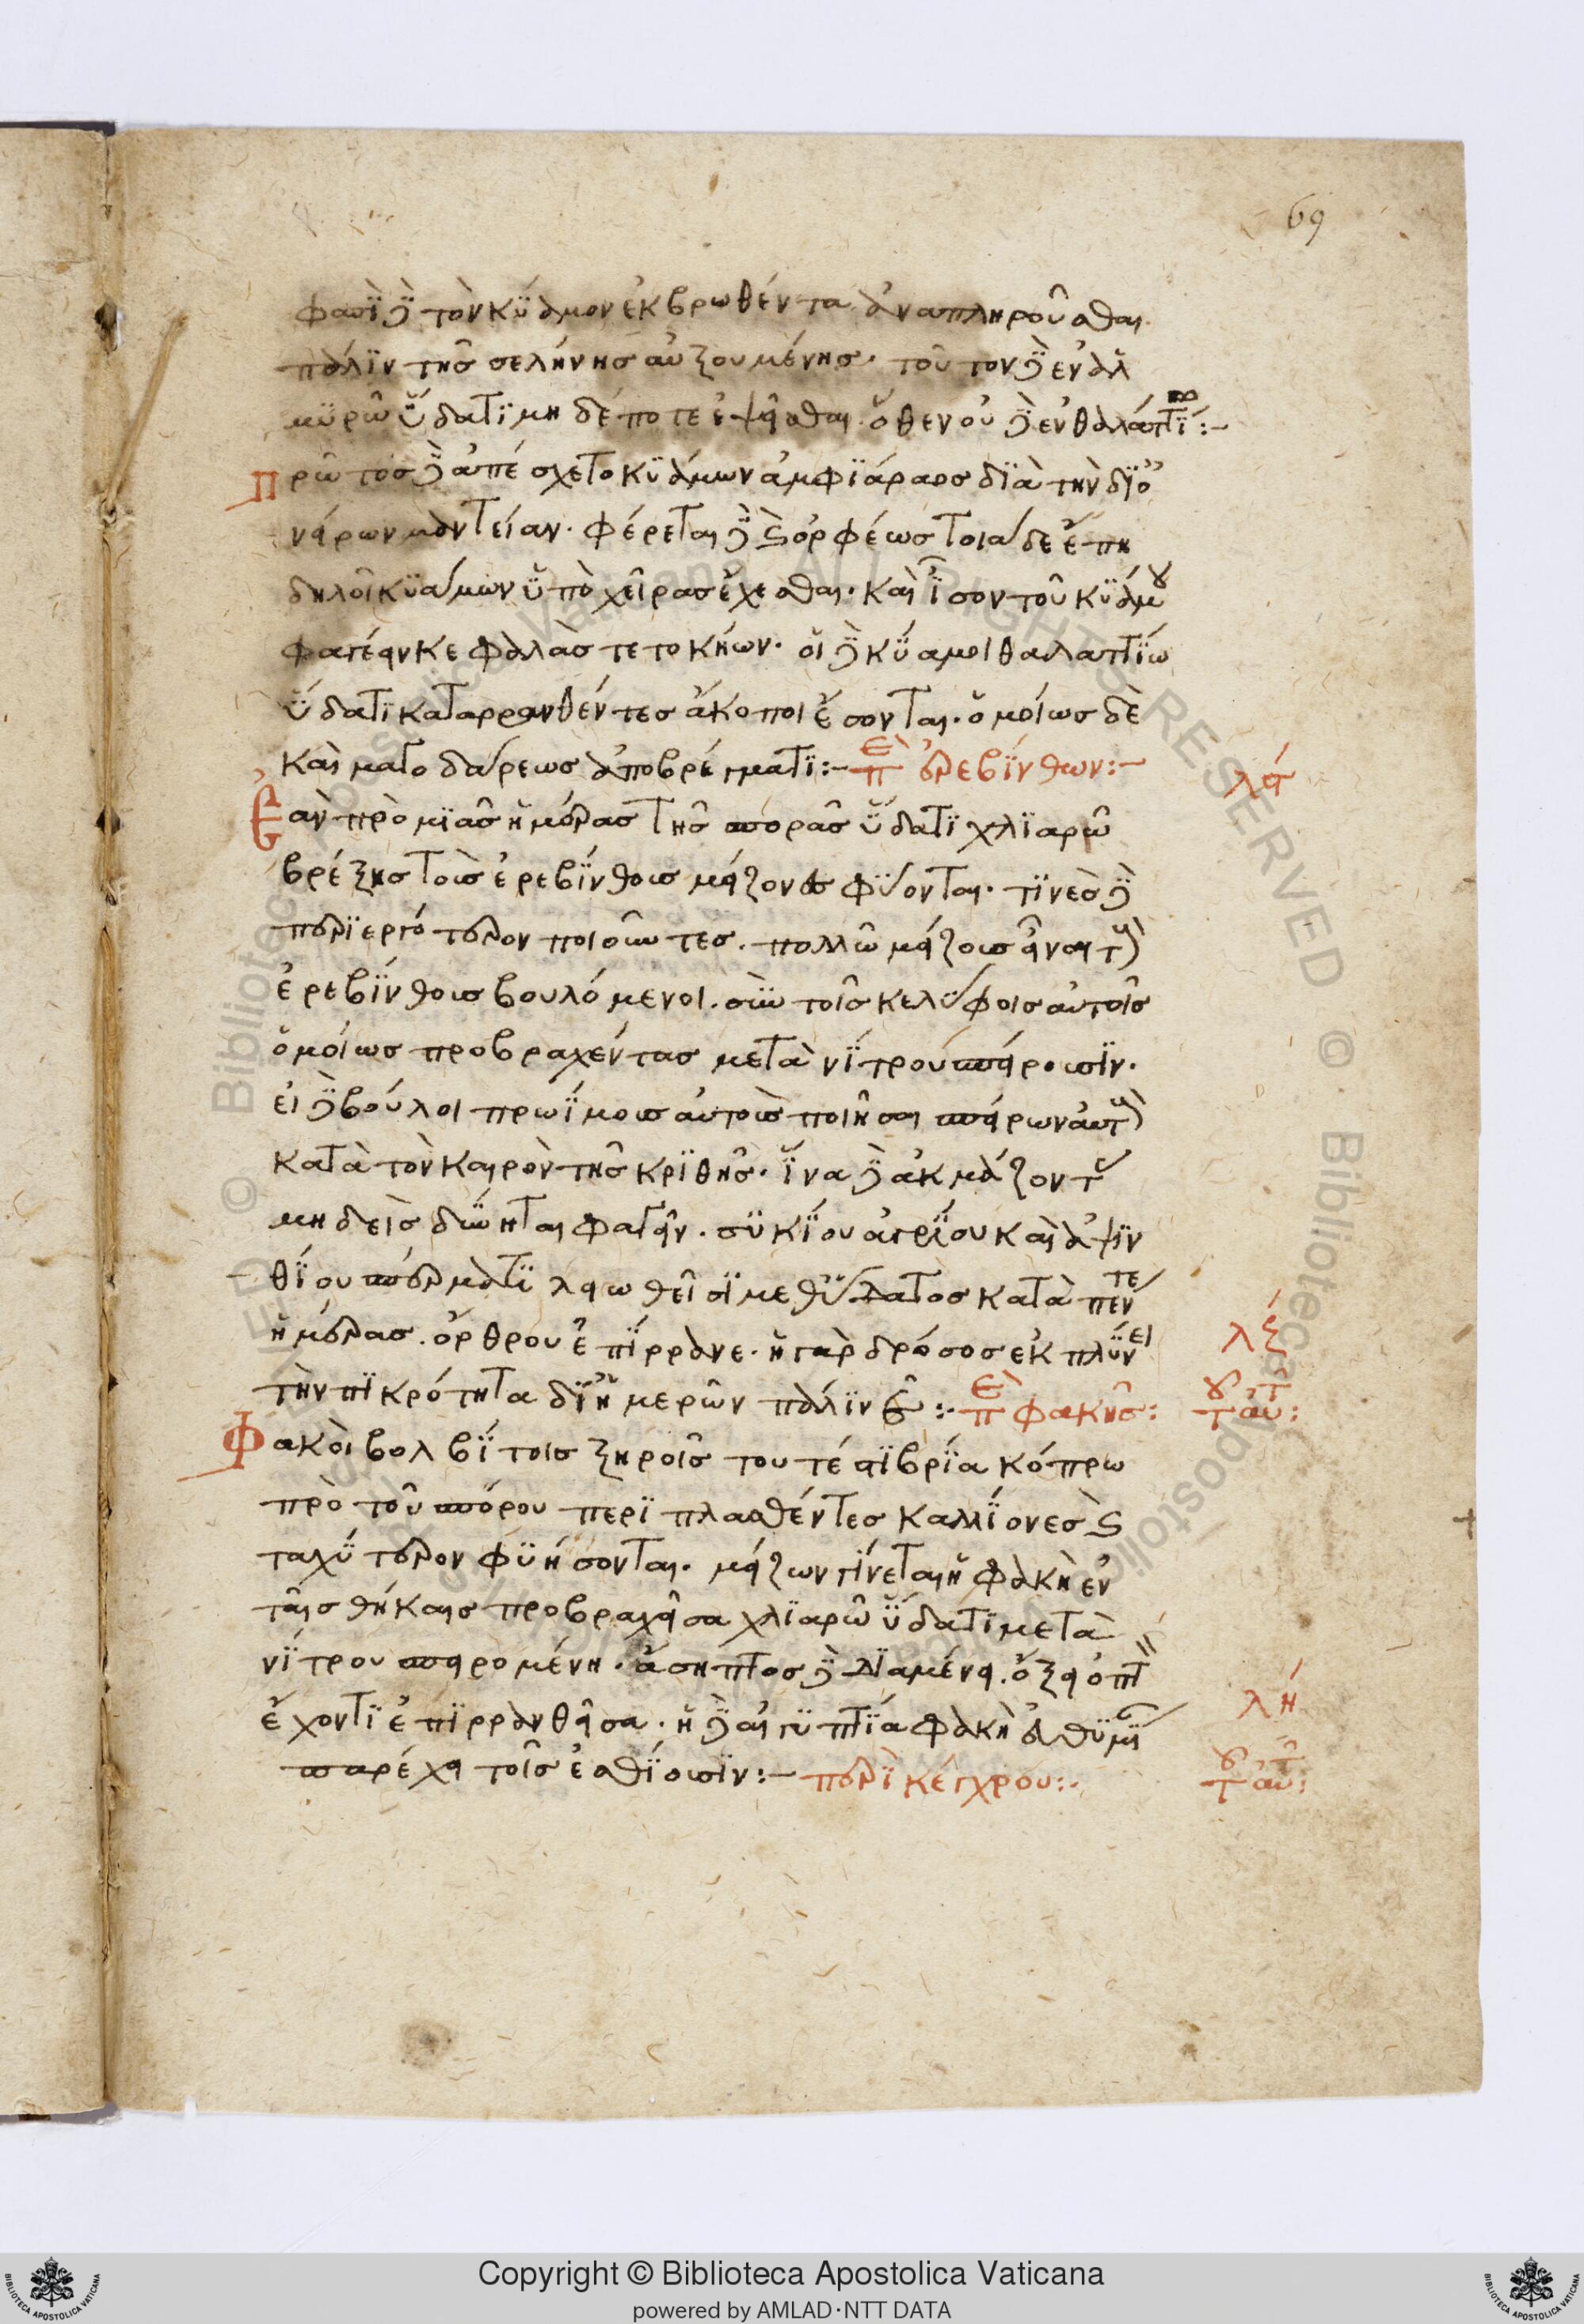 69
φασὶ δὲ τὸν κύαμον ἐκβρωθέντα ἀναπληροῦσθαι
πάλιν τῆς σελήνης αὐξουμένης. τοῦτον δὲ ἐν ἁλ
μυρῶ ὕδατι μηδέποτε ἑψεῖσθαι. ὅθεν οὐδὲ ἐν θαλαττί:-
Πρῶτος δὲ ἀπέσχετο κυάμων ἀμφιάραος διὰ τὴν δι ὀ
νείρων μαντείαν. φέρεται δὲ καὶ ὀρφέως τοιάδε ἔπη
δηλοῖ κυάμων ὕπο χεῖρας ἔχεσθαι. καὶ ἶσον τοῦ κυάμου
φαγέειν κεφαλάς τε τοκήων. οἱ δὲ κύαμοι θαλαττίω
ὕδατι καταρρανθέντες ἄκοποι ἔσονται. ὁμοίως δὲ
καὶ ματοδάρεως ἀποβρέγματι:- περὶ ἐρεβίνθων:-
λϛ
Ἐὰν πρὸ μιᾶς ἡμέρας τῆς σπορᾶς ὕδατι χλιαρῶ
βρέξης τοὺς ἐρεβίνθους μείζονες φύονται. τινὲς δὲ
περιεργότερον ποιοῦντες. πολλῶ μείζους εἶναι τοὺς
ἐρεβίνθους βουλόμενοι. σὺν τοῖς κελύφοις αὐτοῖς
ὁμοίως προβραχέντας μετὰ νίτρου σπείρουσιν.
εἰ δὲ βούλοι πρωΐμους αὐτοὺς ποιῆσαι σπείρων αὐτοὺς
κατὰ τὸν καιρὸν τῆς κριθῆς. ἵνα δὲ ἀκμάζοντ
μηδεὶς δύνηται φαγεῖν. συκίου ἀγρίου καὶ ἀψιν
θίου σπέρματι λειωθεῖσι μεθ ὕδατος κατὰ πέντε
ἡμέρας. ὄρθρου ἐπίρρανε. ἡ γὰρ δρόσος ἐκπλύνει
λζ
τὴν πικρότητα δι ἡμερῶν πάλιν ε:- περὶ φακῆς:
τοῦ αὐτ:
Φακοὶ βολβίτοις ξηροῖς τουτέστι βρία κόπρω
πρὸ τοῦ σπόρου περιπλασθέντες καλλίονες καὶ
ταχύτερον φυήσονται. μείζων γίνεται ἡ φακῆ ἐν
ταῖς θήκαις προβραχεῖσα χλιαρῶ ὕδατι μετὰ
νίτρου σπειρομένη. ἄσηπτος δὲ διαμένει. ὄξει ὀπὸ
ἔχοντι ἐπιρρανθεῖσα. ἡ δὲ αἰγυπτία φακῆ εὐθυμί
λη
παρέχει τοῖς ἐσθίουσιν:- περὶ κέγχρου:.
τοῦ αὐτ:
Copyright © Biblioteca Apostolica Vaticana
powered by AMLAD·NTT DATA